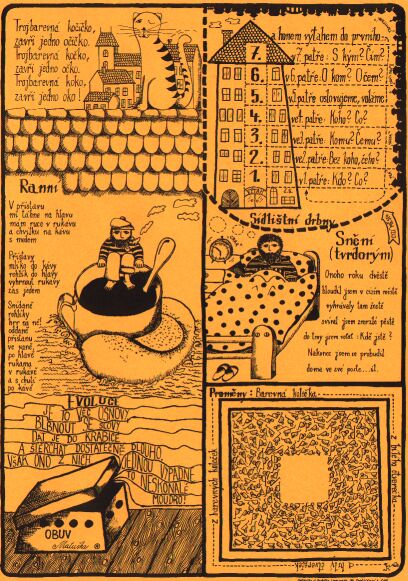 Trojbarevná kočičko,
zavři jedno očičko.
Trojbarevná kočko,
zavři jedno očko.
Trojbarevná koko,
zavři jedno oko!
a honem výtahem do prvního
7. patře: S kým? Čím?
6. v 6. patře: O kom? O čem?
5. v 5. patře oslovujeme, voláme
4. ve 4. patře: Koho? Co?
3. ve 3. patře: Komu? Čemu?
2. ve 2. patře: Bez koho, čeho?
1. v 1. patře: Kdo? Co?
Sídlištní drbny
Ranní
V přístavu
mi táhne na hlavu
mám ruce v rukávu
a chvilku na kávu
s mašem
Přístavy
mlíko do kávy
rohlík do hlavy
vyhrnout rukávy
zas jedem
Snídaně
rohlíky
hrr na ně!
oddaně
přístavu
ve psaně
po hlavě
rukama
v rukávě
a s chutí
po kávě
Snění
(tvrdorým)
Onoho roku dvěstě
bloudil jsem v cizím městě
vyhrávaly tam žestě
svíral jsem zmrzlé pěstě
do tmy jsem volal: Kde jste?
Nakonec jsem se probudil
doma ve své poste...sti.
EVOLUCE
JE TO VĚC ÚSNOVY
BLBNOUT SE SLOVY
DÁT JE DO KRABICE
A ŠTĚRCHAT DOSTATEČNĚ DLOUHO
VŠAK ONO Z NICH JEDNOU VYPADNE
TO NESKONALÉ
MOUDRO!
OBUV
Proměny: Barevná kulička
z barevných kuliček
z nichž čtverečku